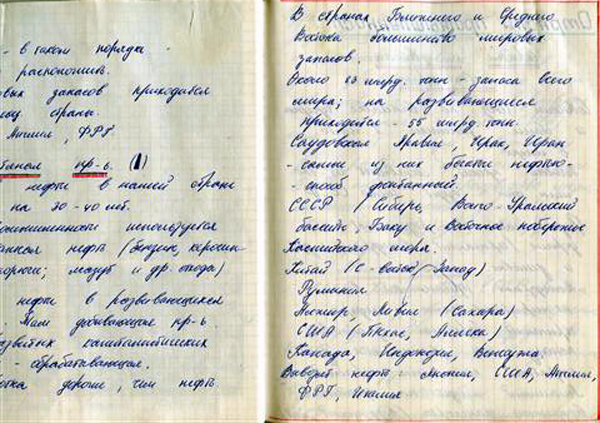 - в таком порядке
расположить.
вых запасов приходится
страны.
Англия, ФРГ
пр-ь. (1)
нефти в нашей стране
на 30-40 лет.
используется
нефть (бензин, керосин
мазут и др. отходы)
нефти в развивающихся
Там добывающая пр-ь.
развитых капиталистических
- обрабатывающая.
дороже, чем нефть
В странах Ближнего и Среднего
Востока большинство мировых
запасов.
Около 83 млрд. тонн - запаса всего
мира; на развивающиеся
приходится - 55 млрд. тонн.
Саудовская Аравия, Ирак, Иран
- самые из них богаты нефтью
- способ фонтанный.
СССР (Сибирь, Волго-Уральский
бассейн, Баку и Восточное побережье
Каспийского моря.
Китай (С-восток, Запад)
Румыния
Алжир, Ливия (Сахара)
США (Техас, Аляска)
Канада, Индонезия, Венесуэла.
Вывозят нефть: Япония, США, Англия,
ФРГ, Италия